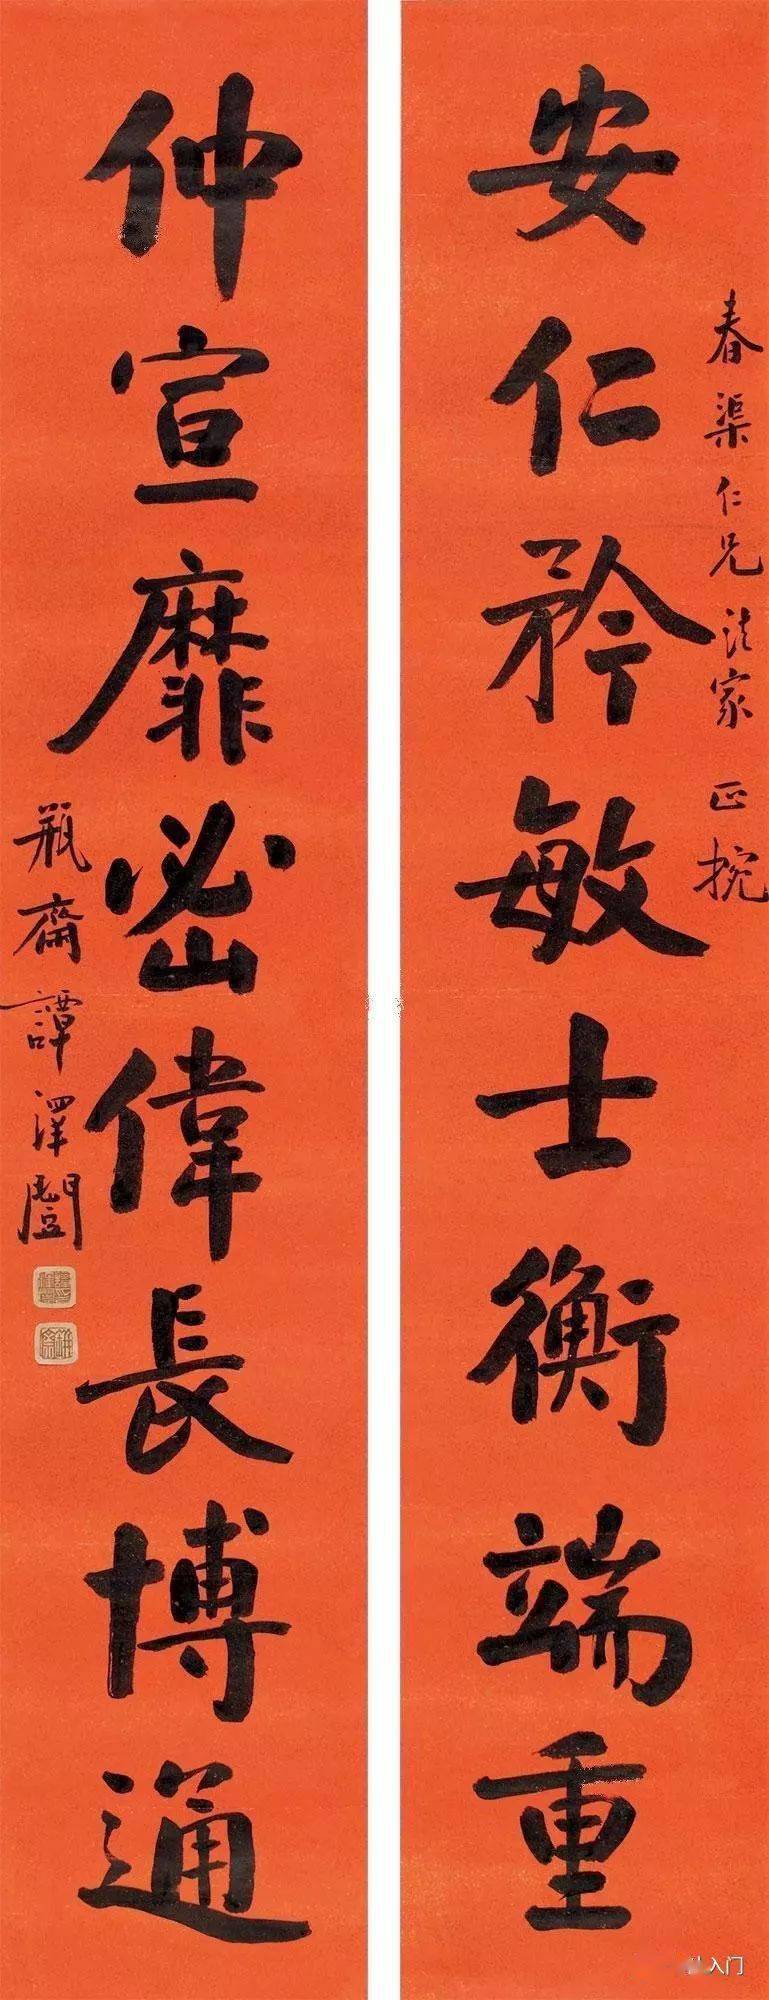 安仁矜敏士衡端重
春渠仁兄法家正挽
仲宣靡密偉長博通
瓶齋譚澤闓
入门